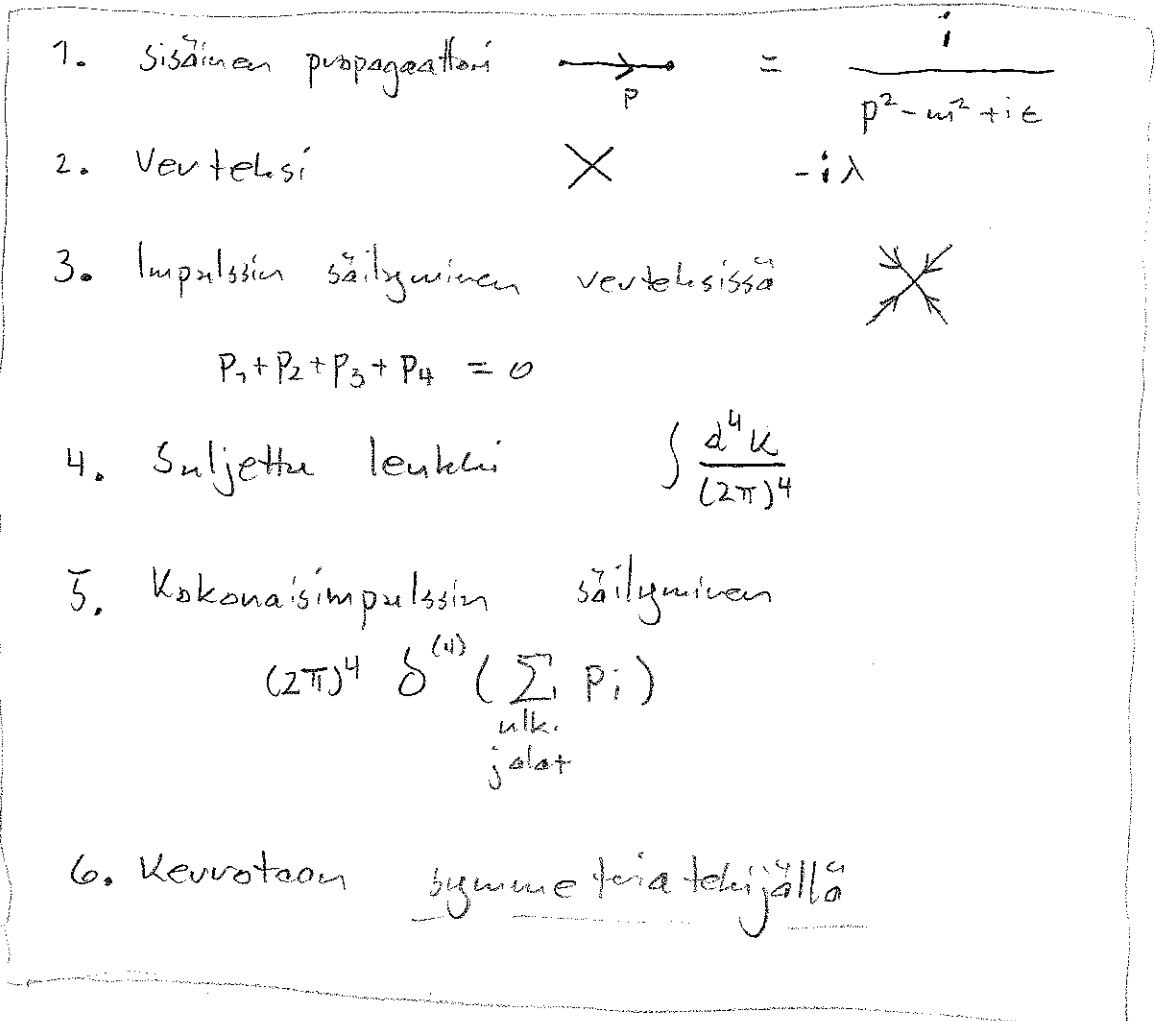 1. Sisäinen propagaattori p = i / (p² - m² + iε)
2. Verteksi -iλ
3. Impulssin säilyminen verteksissä
p₁ + p₂ + p₃ + p₄ = 0
4. Suljettu lenkki ∫ d⁴k / (2π)⁴
5. Kokonaisimpulssin säilyminen
(2π)⁴ δ⁽⁴⁾ ( Σ pᵢ )
ulk.
jalat
6. Kerrotaan symmetriatekijällä